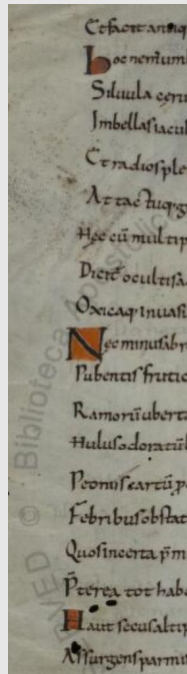 Et facit antiq
Hoc nem umb
Siluula ceru
Imbellas iacul
Et radios ple
At tac tuq; g
Hęc cū multip
Dicit ocultis a
Oxicaq; inuasi
Nec minus abr
Pubentis frutic
Ramorū uberta
Huius odoratū l
Peoniis cartū p
Febribus obstat
Quos incerta p̄m
P̄terea tot habe
Haut secus altip
Assurgens parmis
© Biblioteca Apostolic